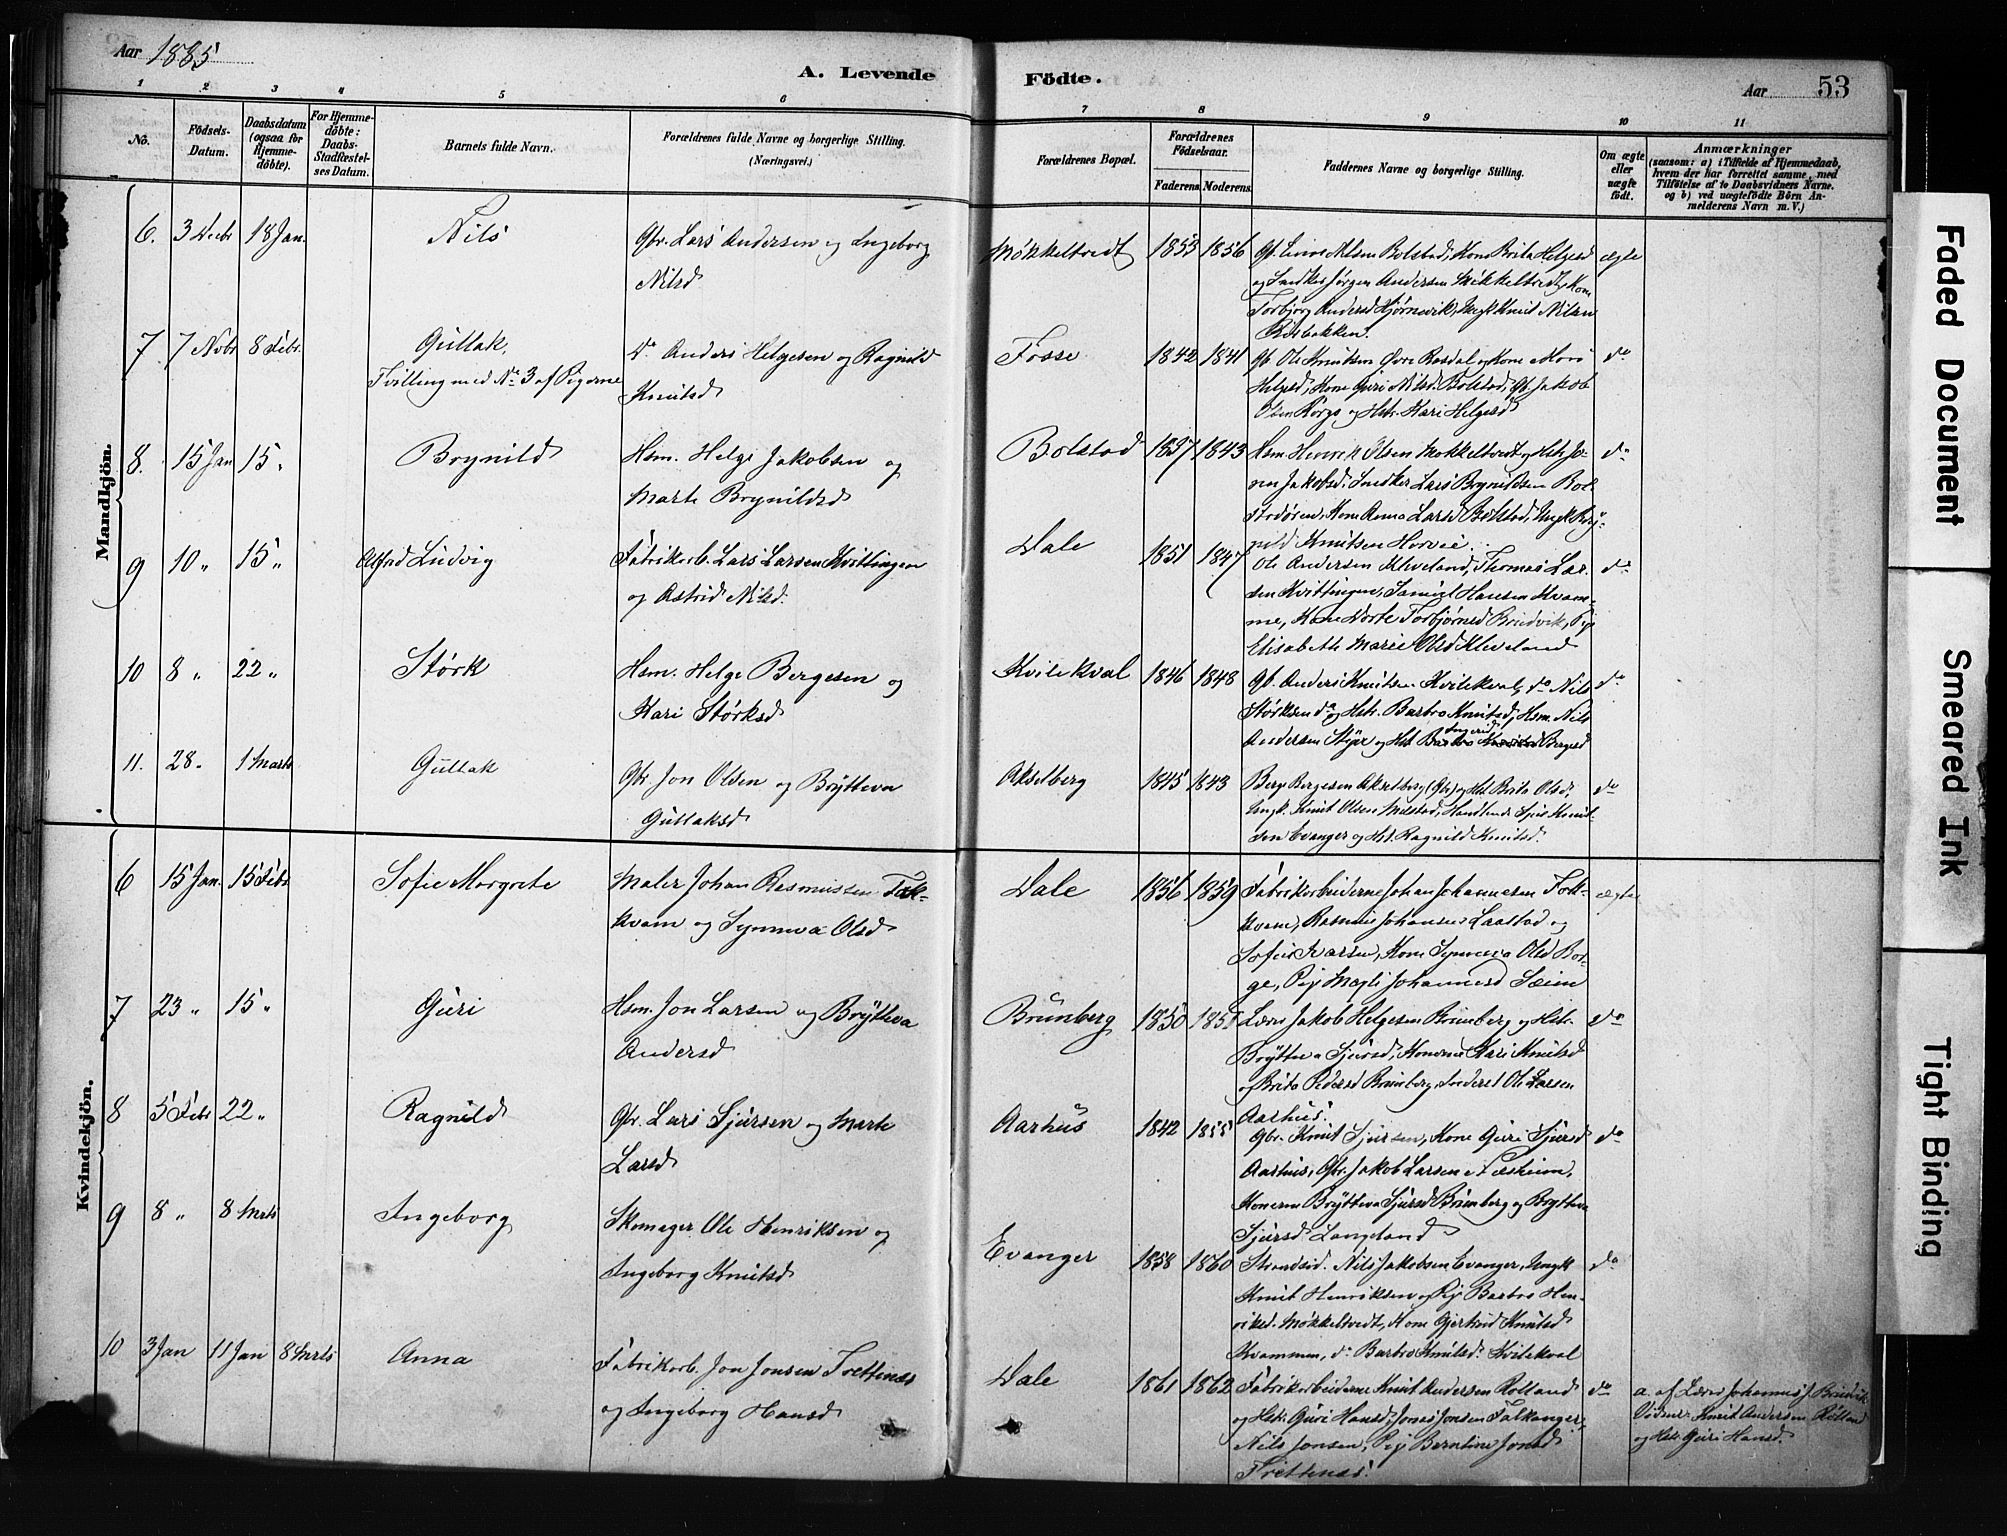 Aar 1885
A. Levende Födte.
Aar 53
1 2 3 4 5 6 7 8 9 10 11
No.
Födsels-Datum.
Daabsdatum (ogsaa for Hjemme-döbte).
For Hjemme-döbte: Daabs-Stadfæstel-ses Datum.
Barnets fulde Navn.
Forældrenes fulde Navne og borgerlige Stilling. (Næringsvei.)
Forældrenes Bopæl.
Forældrenes Födselsaar.
Faderens. Moderens.
Faddernes Navne og borgerlige Stilling.
Om ægte eller uægte födt.
Anmærkninger
(saasom: a) i Tilfælde af Hjemmedaab,
hvem der har forrettet samme, med
Tilföielse af to Daabsvidners Navne.
og b) ved uægtefödte Börn An-
melderens Navn m.V.)
Mandkjön.
6. 3 Decbr 18 Jan. Nils Gbr. Lars Andersen og Ingeborg
Nilsd
Møkkeltvedt 1853 1856 ægte
Helgesd
og Snedker Jørgen Andersen Møkkeltvedt, Kone
Torbjørg Andersd Hjørnevik, Ungk Knut Nilsen
7 7 Novbr 8 Febr. Gullak,
Tvilling med No 3 af Pigerne
Do Anders Helgesen og Ragnild
Knutsd
Fosse 1842 1841 Gb. Ole Knutsen Øvre Rasdal og Kone
Helgesd, Kone Guri Nilsd Bolstad, Gb. Jakob
Olsen og Hstr. Kari Helgesd
do
8. 15 Jan 15 " Brynild Hsm. Helge Jakobsen og
Marte Brynildsd
Bolstad 1837 1843 Hsm. Henrik Olsen Møkkeltvedt og Hstr
Jakobsd. Snedker Lars Brynildsen Bol-
stadøren, Kone Anna Larsd Bolstad, Ungk
Knutsen
do
9 10 " 15 " Alfred Ludvig Fabrikarb. Lars Larsen Kvittingen
og Astrid Nilsd.
Dale 1851 1847 Ole Andersen Kleveland, Thomas Lar-
sen Kvittingen, Samuel Hansen Kvam-
me, Kone Dorte Torbjørnsd Bruvik, Pig
Elisabeth Marie Olsd Kleveland
do
10 8 " 22 " Størk Hsm. Helge Bergesen og
Kari Størksd
Kvilekval 1846 1848 Gb. Anders Knutsen Kvilekval, do Nils
Størksen do og Hstr. Barbro Knutsd, Hsm. Nils
Andersen og Hst Ingerid Bergesd
do
11. 28 " 1 Marts Gullak Gbr Jon Olsen og Brytteva
Gullaksd
Akselberg 1845 1843 Berge Bergesen Akselberg (Gbr) og Hst Brita Olsd,
Ungk. Knut Olsen Milstad, Handlende Sjur Knut-
sen Evanger og Hst. Ragnild Knutsd.
do
Kvindekjön.
6 15 Jan. 15 Febr Sofie Margrete Maler Johan Rasmussen Fok-
kvam og Synneva Olsd
Dale 1856 1859 Fabrikarbeiderne Johan Johannesen Fok-
kvam, Rasmus Johansen Laastad og
Sofie Ivarsen, Kone Synneva Olsd Bor-
ge, Pig Magli Johannesd Seim
ægte
7 23 " 15 " Guri Hsm. Jon Larsen og Brytteva
Andersd
Brunberg 1850 Lærer Jakob Helgesen Brunberg og Hstr.
Brytteva Sjursd, Konerne Kari Knutsd
og Brita Pedersd Brunberg, Inderst Ole Larsen
Aarhus.
do
8 5 Febr 22 " Ragnild Gbr. Lars Sjursen og Marte
Larsd
Aarhus 1842 1855 Gbr. Knut Sjursen, Kone Guri Sjursd
Aarhus, Gbr. Jakob Larsen
Konerne Brytteva Sjursd Brunberg og Brytteva
Sjursd Langeland
do
9 8 " 8 Mrts Ingeborg Skomager Ole Henriksen og
Ingeborg Knutsd
Evanger 1858 1860 Strandsid. Nils Jakobsen Evanger, Ungk
Knut Henriksen og Pig Barbro Hen-
riksd. Møkkeltvedt, Kone Gjertrud Knutsd
Kvammen, do Barbro Knutsd. Kvilekval
do
10 3 Jan 11 Jan 8 Mrts Anna Fabrikarb. Jon Jonsen Trettenæs
og Ingeborg Hansd
Dale 1861 1862 Fabrikarbeiderne Knut Andersen Rolland
og Hstr. Guri Hansd, Jonas Jonsen Falkanger,
Nils Jonsen, Pig Berntine Jonsd
Trettenæs.
do
a. af Lærer Johannes J. Bruvik
Vidner: Knut Andersen Rolland
og Hstr Guri Hansd.
Faded Document
Smeared Ink
Tight Binding